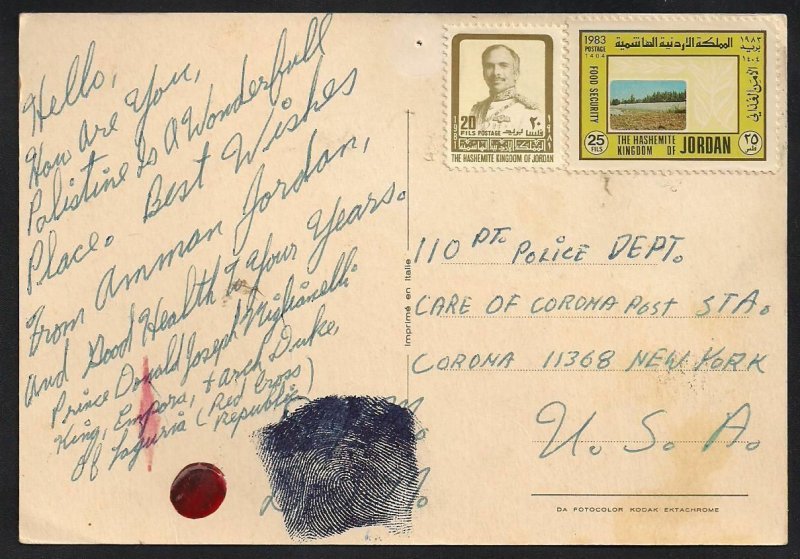 Hello,
How Are You,
Palistine Is A Wonderfull
Place. Best Wishes
From Amman Jordan,
And Good Health to Your Years.
Prince Donald Joseph Miglianelli
King, Empora, + arch Duke,
Of Laguria (Red Cross
Republic)
M.
M.
20
FILS POSTAGE
٢٠
THE HASHEMITE KINGDOM OF JORDAN
1983
POSTAGE
1404
المملكة الاردنية الهاشمية
١٩٨٣
بريد
١٤٠٤
FOOD SECURITY
الأمن الغذائي
25
FILS
THE HASHEMITE
KINGDOM OF JORDAN
٢٥
فلس
Imprimé en Italie
110 PT. POLICE DEPT.
CARE OF CORONA POST STA.
CORONA 11368 NEW YORK
U. S. A.
DA FOTOCOLOR KODAK EKTACHROME